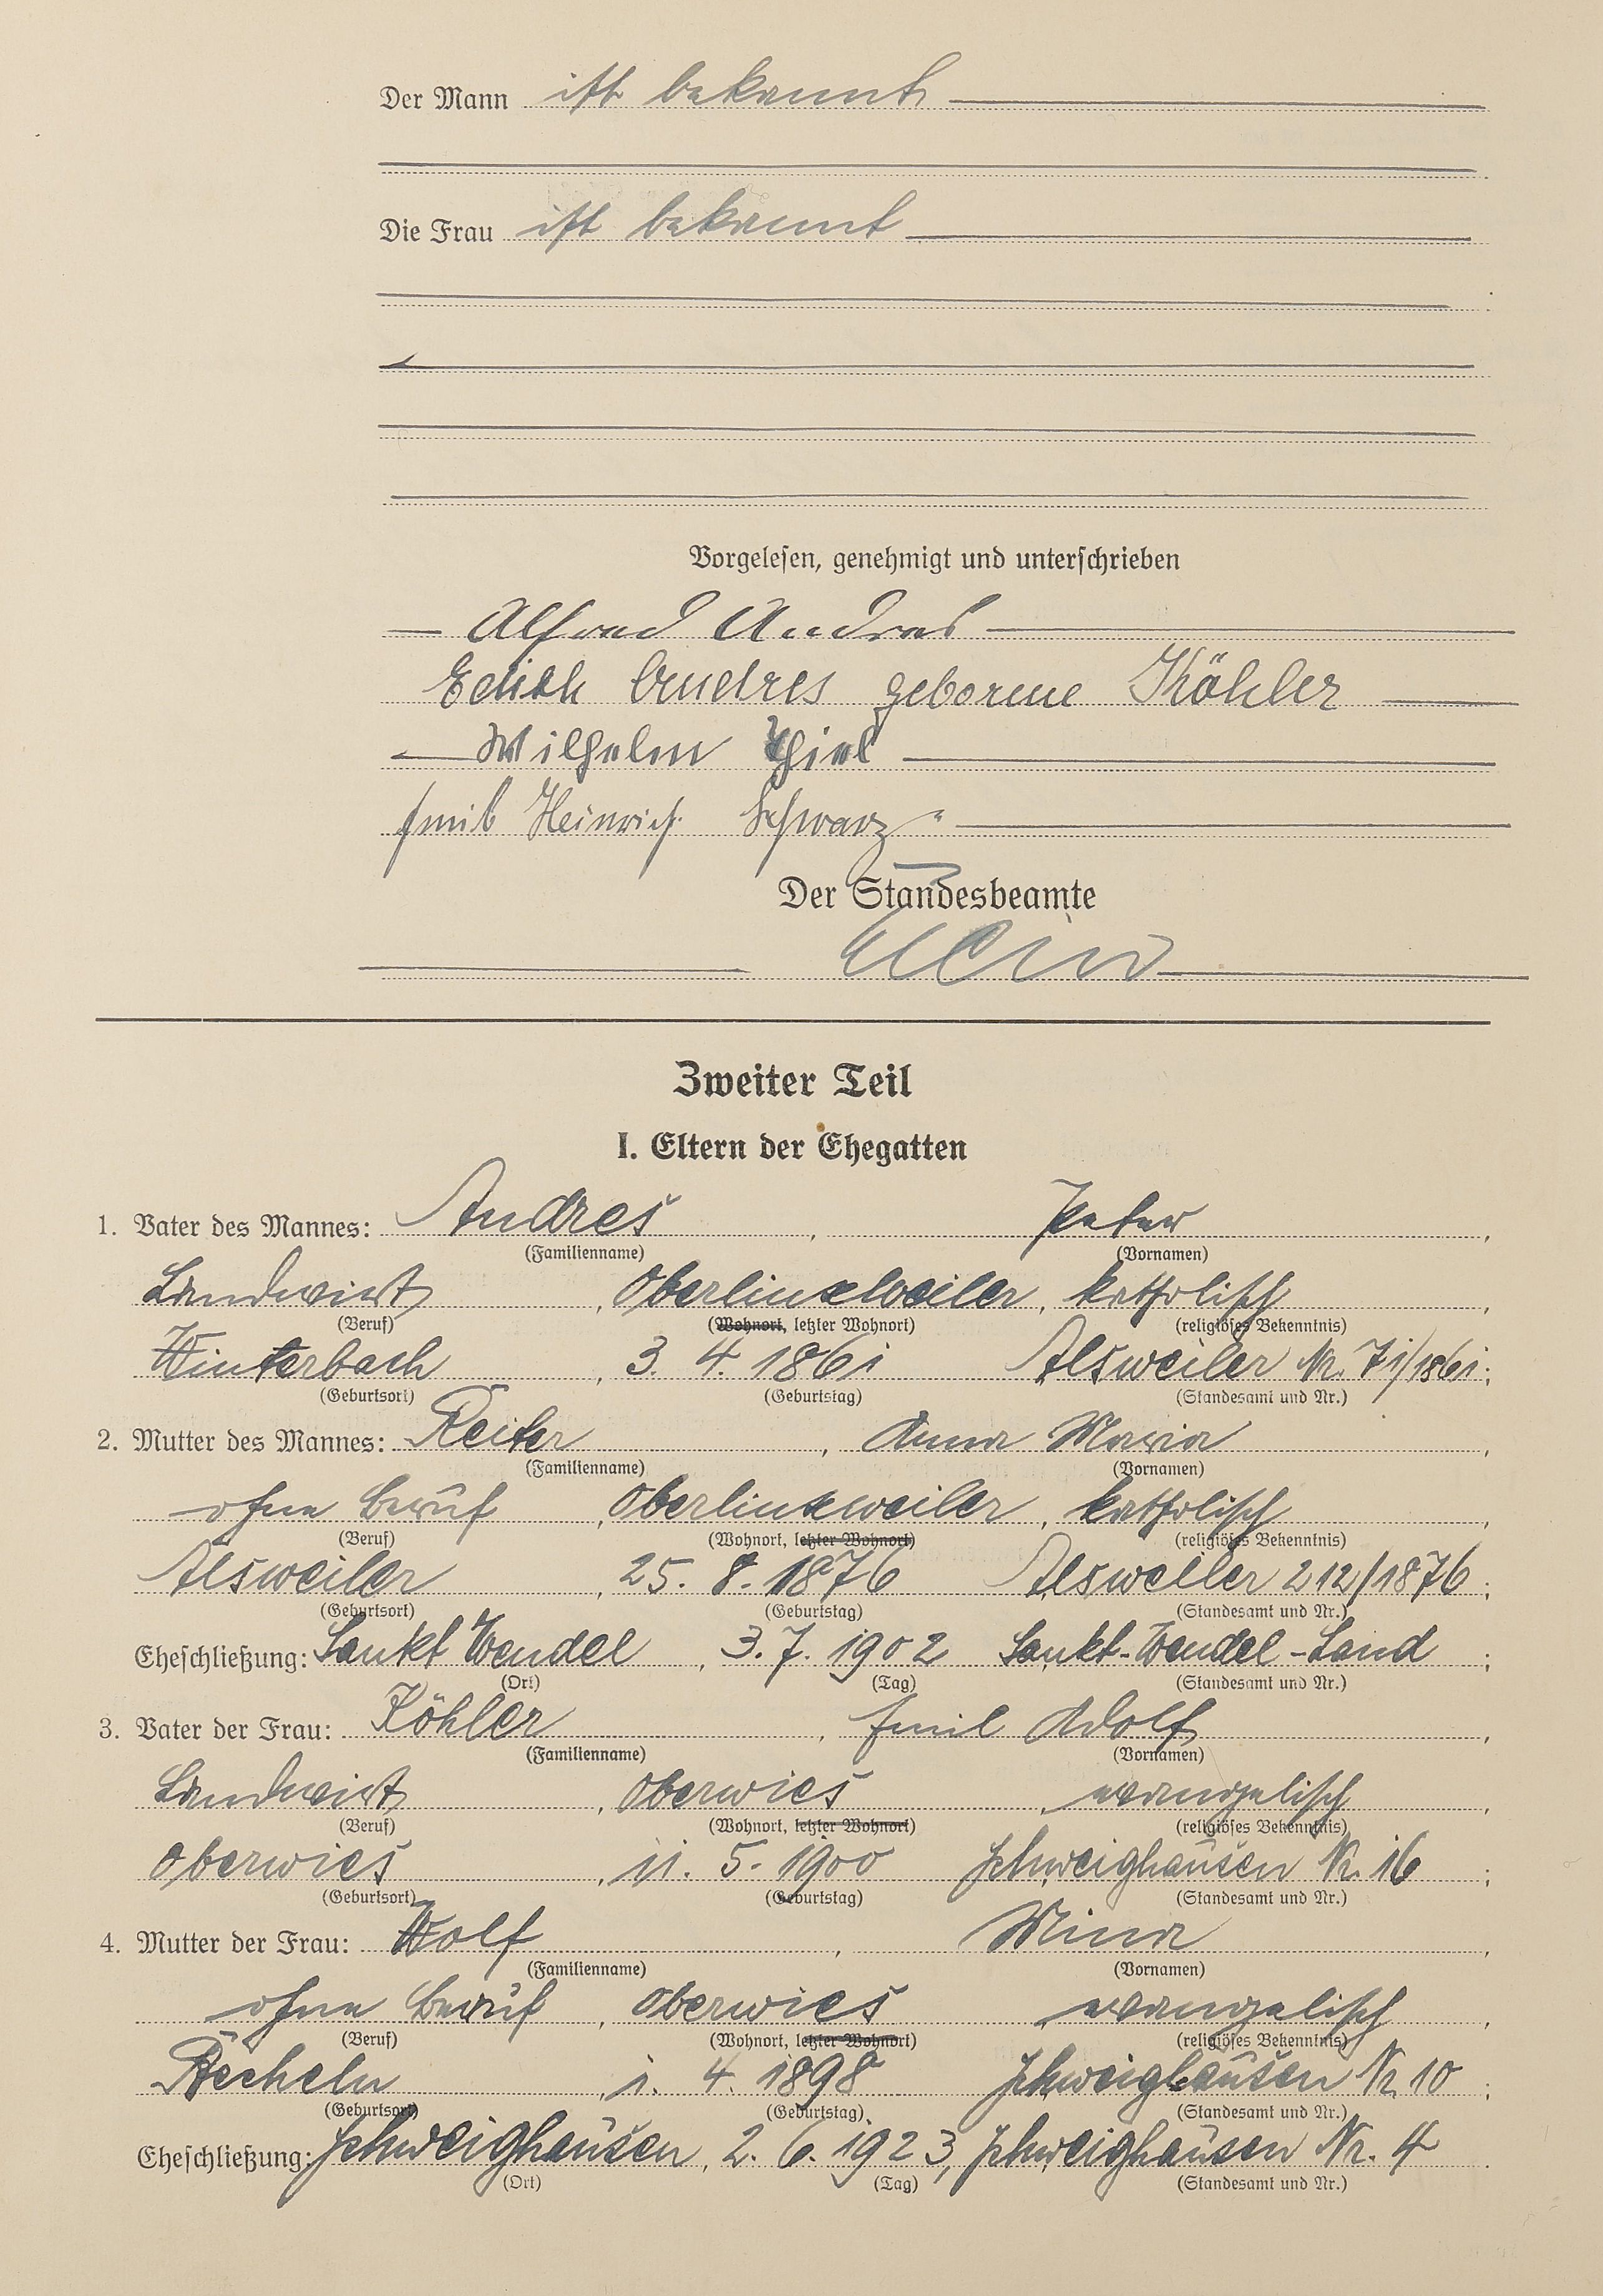 Der Mann ist bekannt
Die Frau ist bekannt
Vorgelesen, genehmigt und unterschrieben
Alfred Andres
Edith Andres geborene Köhler
Wilhelm Thiel
Emil Heinrich Schwarz
Der Standesbeamte
Zweiter Teil
I. Eltern der Ehegatten
1. Vater des Mannes: Andres, Peter,
(Familienname) (Vornamen)
Landwirt, Oberlinxweiler, katholisch,
(Beruf) (Wohnort, letzter Wohnort) (religiöses Bekenntnis)
Winterbach, 3. 4. 1861 Alsweiler Nr. 71/1861;
(Geburtsort) (Geburtstag) (Standesamt und Nr.)
2. Mutter des Mannes: Reiter, Anna Maria,
(Familienname) (Vornamen)
ohne Beruf, Oberlinxweiler, katholisch,
(Beruf) (Wohnort, letzter Wohnort) (religiöses Bekenntnis)
Alsweiler, 25. 8. 1876 Alsweiler 212/1876;
(Geburtsort) (Geburtstag) (Standesamt und Nr.)
Eheschließung: Sankt Wendel, 3. 7. 1902 Sankt-Wendel-Land;
(Ort) (Tag) (Standesamt und Nr.)
3. Vater der Frau: Köhler, Emil Adolf,
(Familienname) (Vornamen)
Landwirt, Oberwies, evangelisch,
(Beruf) (Wohnort, letzter Wohnort) (religiöses Bekenntnis)
Oberwies, 11. 5. 1900 Schweighausen Nr. 16;
(Geburtsort) (Geburtstag) (Standesamt und Nr.)
4. Mutter der Frau: Wolf, Mina,
(Familienname) (Vornamen)
ohne Beruf, Oberwies, evangelisch,
(Beruf) (Wohnort, letzter Wohnort) (religiöses Bekenntnis)
Becheln, 1. 4. 1898 Schweighausen Nr. 10;
(Geburtsort) (Geburtstag) (Standesamt und Nr.)
Eheschließung: Schweighausen, 2. 6. 1923, Schweighausen Nr. 4.
(Ort) (Tag) (Standesamt und Nr.)